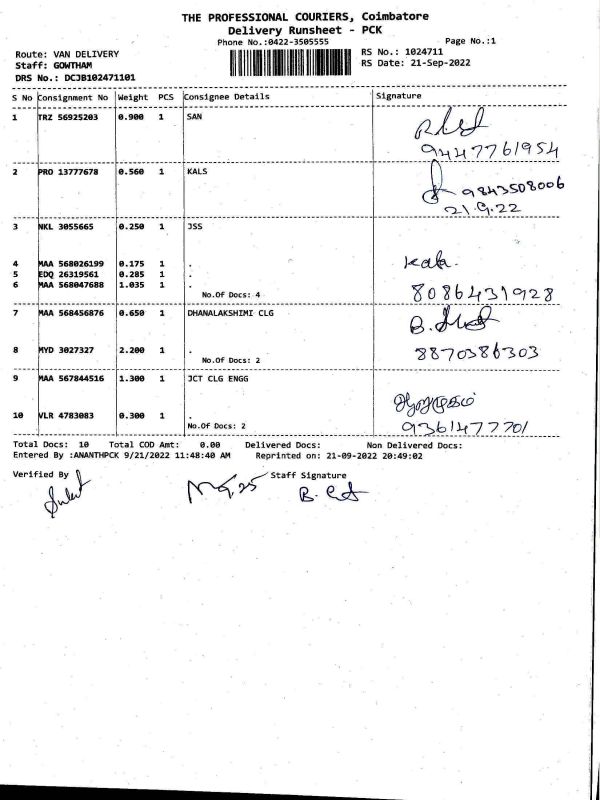 THE PROFESSIONAL COURIERS, Coimbatore
Delivery Runsheet - PCK
Phone No.:0422-3505555
Page No.:1
Route: VAN DELIVERY
RS No.: 1024711
Staff: GOWTHAM
RS Date: 21-Sep-2022
DRS No.: DCJB102471101
S No Consignment No Weight PCS Consignee Details Signature
1 TRZ 56925203 0.900 1 SAN
9447761954
2 PRO 13777678 0.560 1 KALS
9843508006
21.9.22
3 NKL 3055665 0.250 1 JSS
4 MAA 568026199 0.175 1 .
Kala.
5 EDQ 26319561 0.285 1 .
6 MAA 568047688 1.035 1 .
No.Of Docs: 4
8086431928
7 MAA 568456876 0.650 1 DHANALAKSHIMI CLG
8 MYD 3027327 2.200 1 .
8870386303
No.Of Docs: 2
9 MAA 567844516 1.300 1 JCT CLG ENGG
ஆறுமுகம்
10 VLR 4783083 0.300 1 .
No.Of Docs: 2
9361477701
Total Docs: 10 Total COD Amt: 0.00 Delivered Docs: Non Delivered Docs:
Entered By :ANANTHPCK 9/21/2022 11:48:40 AM Reprinted on: 21-09-2022 20:49:02
Verified By Staff Signature